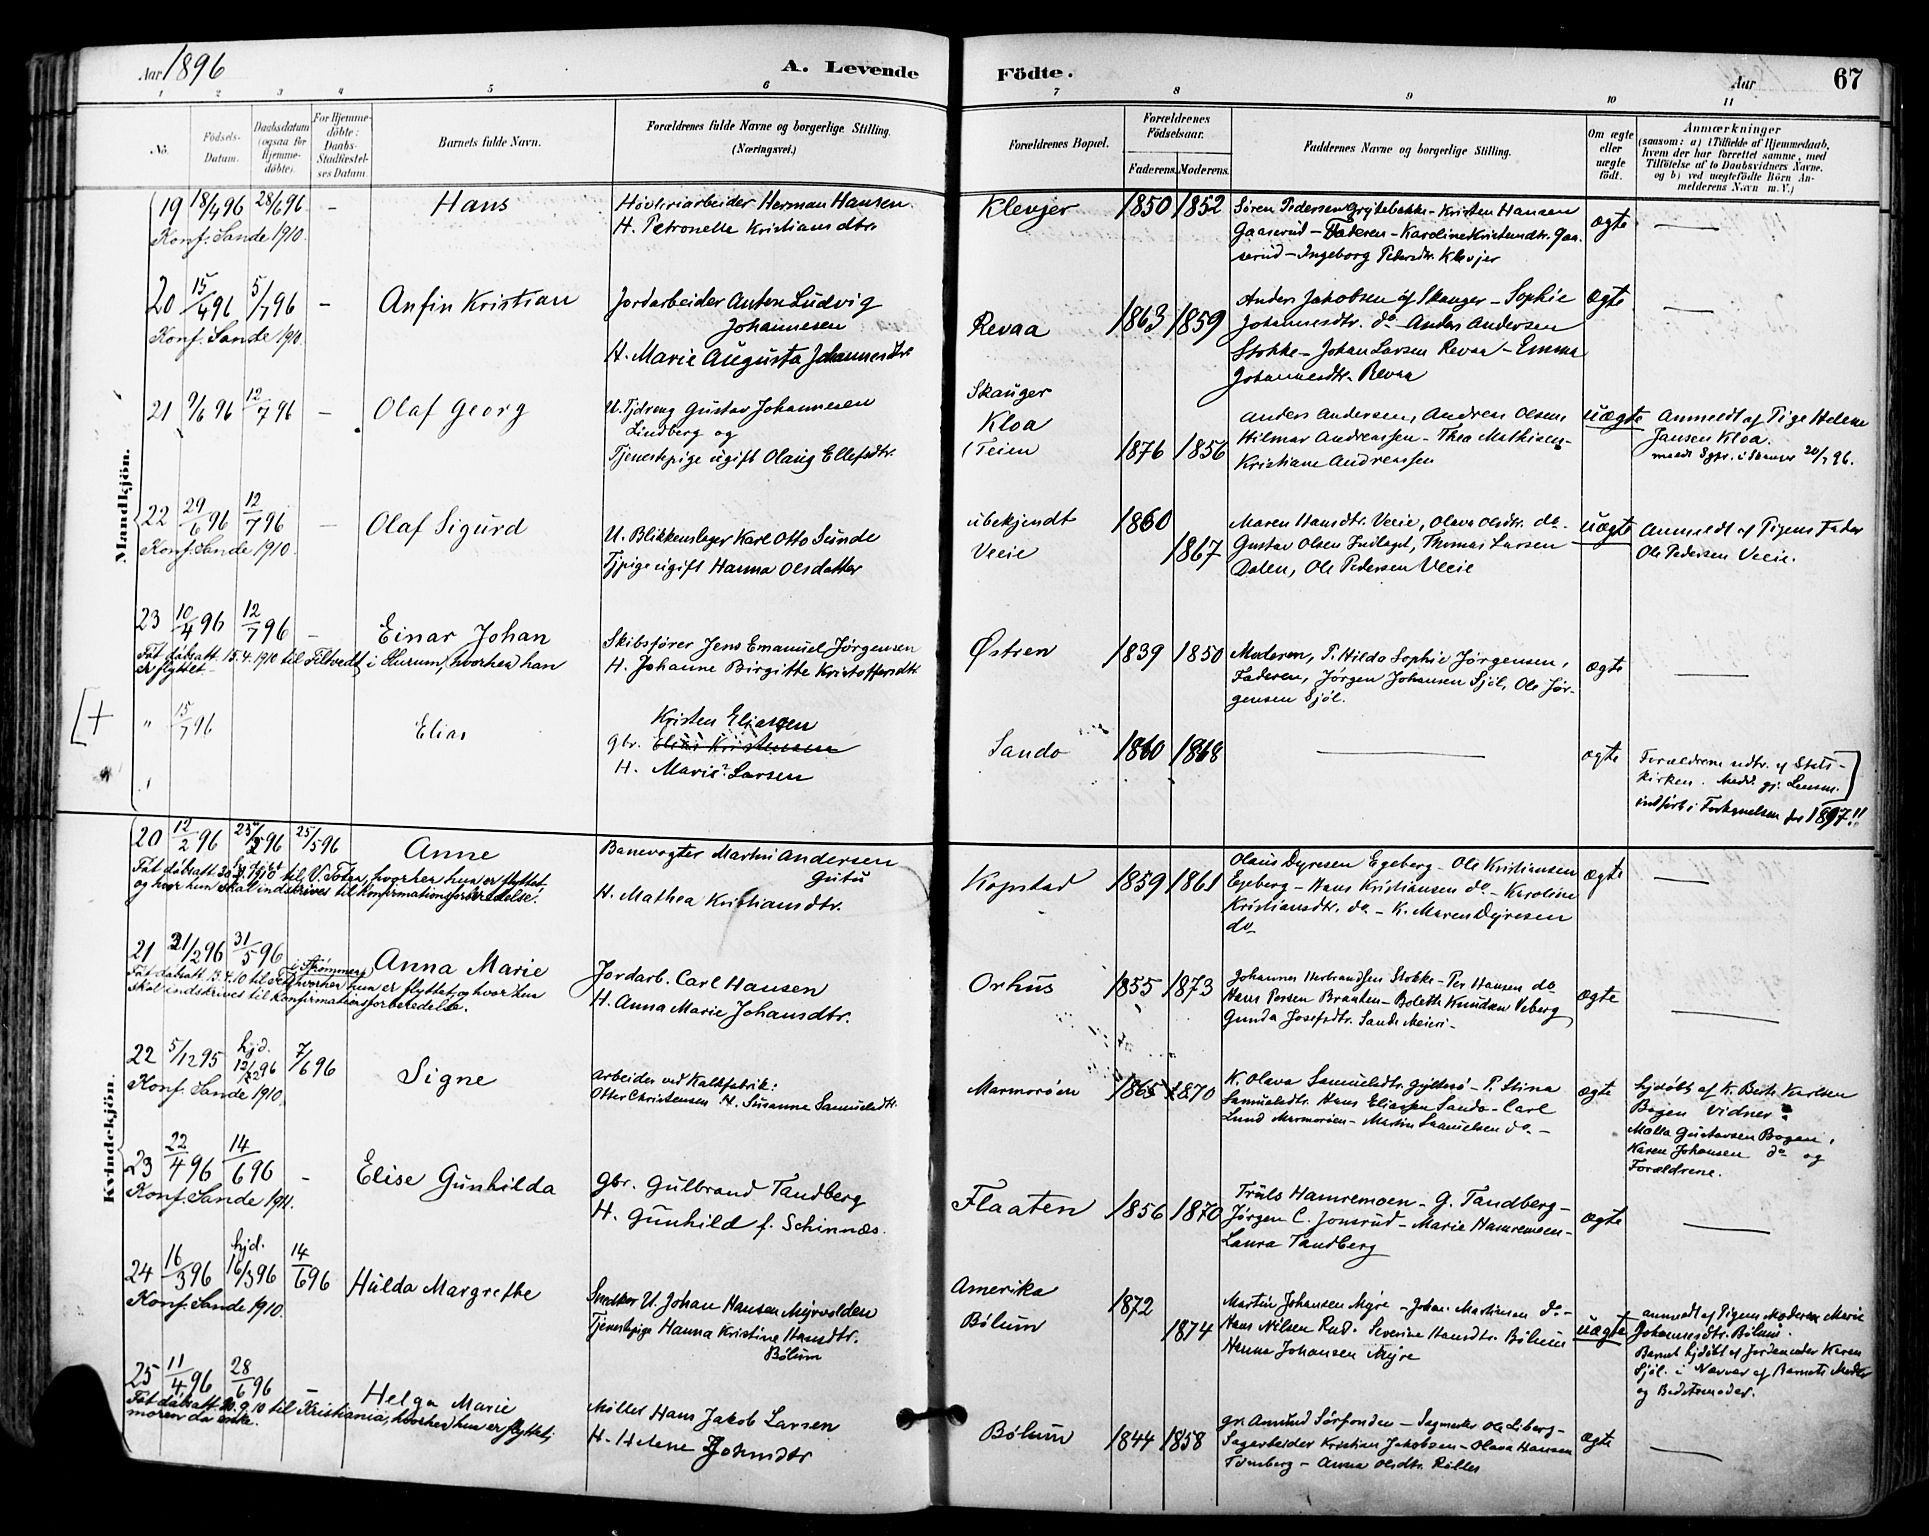 Aar 1896
A. Levende Födte.
Aar
67
1 2 3 4 5 6 7 8 9 10 11
No.
Födsels-Datum.
Daabsdatum (ogsaa for Hjemmedöbte).
For Hjemmedöbte: Daabs-Stadfæstelses Datum.
Barnets fulde Navn.
Forældrenes fulde Navne og borgerlige Stilling. (Næringsvei.)
Forældrenes Bopæl.
Forældrenes Födselsaar.
Faderens. Moderens.
Faddernes Navne og borgerlige Stilling.
Om ægte eller uægte födt.
Anmærkninger
(saasom: a) i Tilfælde af Hjemmedaab,
hvem der har forrettet samme, med
Tilföielse af to Daabsvidners Navne,
og b) ved uægtefödte Börn Anmelderens Navn m. V.)
Mandkjön.
19 18/4 96 28/6 96 – Hans
Konf. Sande 1910.
Høvleriarbeider Herman Hansen
H. Petronelle Kristiansdtr.
Klevjer 1850 1852
Søren Pedersen Grytebekke – Kristen Hansen
Gaaserud – Faderen – Karoline Kristiansdtr. Gaa-
serud – Ingeborg Pedersdtr. Klevjer
ægte —
20 15/4 96 5/7 96 – Anfin Kristian
Konf. Sande 1910.
Jordarbeider Anton Ludvig
Johannesen
H. Marie Augusta Johannesdtr.
Revaa 1863 1859
Anders Jakobsen af Skauger – Sophie
Johannesdtr. do – Anders Andersen
Stokke – Johan Larsen Revaa – Emma
Johannesdtr. Revaa
ægte —
21 9/6 96 12/7 96 – Olaf Georg
U. Tjdreng Gustav Johannesen
Lindberg og
Tjenestepige ugift Olaug Ellefsdtr.
Skauger
Kloa
(Teien 1876 1856
Anders Andersen, Andreas Olsen,
Hilmar Andreassen – Thea Mathisen –
Kristiane Andreassen
uægte
Anmeldt af Pige Helene
Jansen Kloa.
20/7 96.
22 29/6 96 12/7 96 – Olaf Sigurd
Konf. Sande 1910.
U. Blikkenslager Karl Otto Sunde
Tjpige ugift Hanna Olsdatter
ubekjendt 1860
Veeie 1867
Maren Hansdtr. Veeie, Olava Olsdtr. do.
Gustav Olsen Indlaget, Thomas Larsen
Dalen, Ole Pedersen Veeie
uægte
Anmeldt af Pigens Fader
Ole Pedersen Veeie.
23 10/4 96 12/7 96 – Einar Johan
Fåt dåbsatt. 15.4.1910 til Filtvedt i Hurum, hvorhen han
er flyttet
Skibsfører Jens Emanuel Jørgensen
H. Johanne Birgitte Kristoffersdtr.
Østren 1839 1850
Moderen, P. Hilda Sophie Jørgensen,
Faderen, Jørgen Johansen Sjøl, Ole Jør-
gensen Sjøl.
ægte —
[+ " 15/7 96 Elias
Kristen Eliasen
gbr. Elias Kristensen
H. Marie Larsen
Sando 1860 1868
—
ægte
Forældrene udtr. af Stats-
kirken. Medd. gj. Lensm.
indført i Fortegnelsen for 1897!!
Kvindekjön.
20 12/2 96 25/5 96 25/5 96 Anne
Fåt dåbsatt. 1910 til V. Toten, hvorhen hun er flyttet,
og hvor hun skal indskrives til konfirmationsforberedelse.
Banevogter Martin Andersen
Gutu
H. Mathea Kristiansdtr.
Kopstad 1859 1861
Olaus Dyresen Egeberg – Ole Kristiansen
Egeberg – Hans Kristiansen do – Karoline
Kristiansdtr. do – K. Maren Dyresen
do
ægte —
21 21/2 96 31/5 96 Anna Marie
Fåt dåbsatt. 13.4.10 til i Strømmen, hvorhen hun er flyttet, og hvor hun
skal indskrives til konfirmationsforberedelse.
Jordarb. Carl Hansen
H. Anna Marie Johansdtr.
Orhus 1855 1873
Johannes Herbrandsen Stokke – Per Hansen do
Hans Persen Braaten – Bolette Knudsen Veberg
Gunda Josefsdtr. Sande Meieri –
ægte —
22 5/12 95 hjd. 12/12 96 7/6 96 Signe
Konf. Sande 1910.
Arbeider ved Kalkfabrik:
Otter Christensen H. Susanne Samuelsdtr.
Marmorøen 1865 1870
K. Olava Samuelsdtr. Gyltesø – P. Stina
Samuelsdtr. Hans Eliassen Sando – Carl
Lund Marmorøen – Martin Samuelsen do –
ægte
hjdøbt af K. Berte Karlsen
Bogen Vidner:
Malla Gustavsen Bogen,
Karen Johansen do og
Forældrene.
23 22/4 96 14/6 96 – Elise Gunhilda
Konf. Sande 1911.
Gbr. Gulbrand Tandberg
H. Gunhild f. Schinnæs.
Flaaten 1856 1870
Truls Hamremoen – G. Tandberg –
Jørgen C. Jonsrud – Marie Hamremoen –
Laura Tandberg
ægte —
24 16/3 96 hjd. 16/3 96 14/6 96 Hulda Margrethe
Konf. Sande 1910.
Snedker U. Johan Hansen Myrvolden
Tjenestepige Hanna Kristine Hansdtr.
Bølum
Amerika 1872
Bølum 1874
Martin Johansen Myre – Johan Martinsen do –
Hans Nilsen Rud. Severine Hansdtr. Bølum
Hanna Johansen Myre
uægte
anmeldt af Pigens Moderen Marie
Johannesdtr. Bølum.
Barnet hjdøbt af Jordemoder Karen
Sjøl. i Nærvær af Barnets Moder
og Bedstemoder.
25 11/4 96 28/6 96 – Helga Marie
Fåt dåbsatt. 20.9.10 til Kristiania, hvorhen hun er flyttet,
moren da enke.
Møller Hans Jakob Larsen
H. Helene Johnsdtr
Bølum 1844 1858
gr. Amund Sørfonden – Sagmester Ole Liberg –
Sagarbeider Kristian Jakobsen – Olava Hansen
Tømberg – Anna Olsdtr. Røllas
ægte —